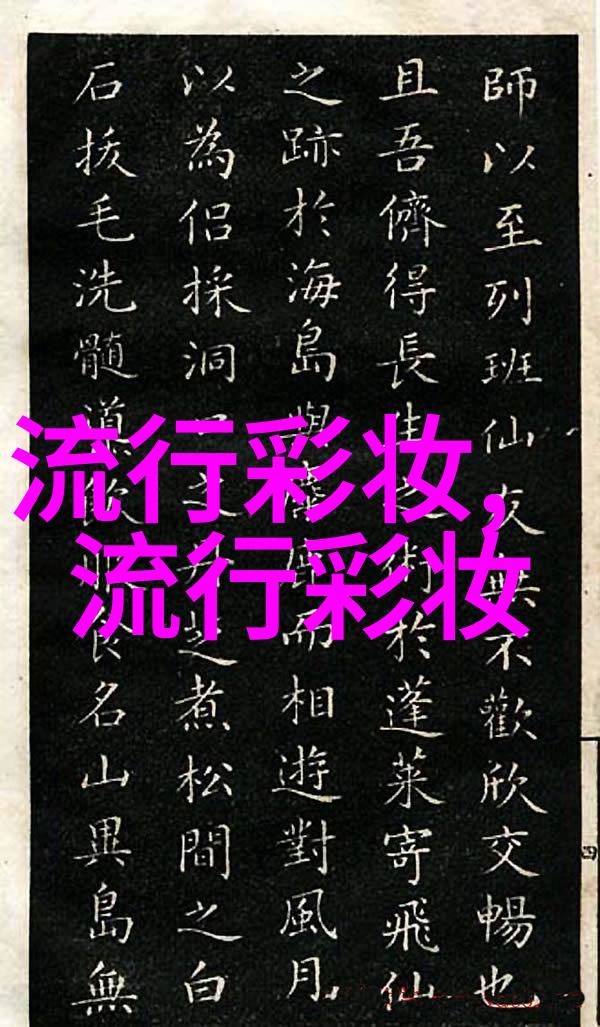 師以至列班仙友無不歡欣交暢也
且吾儕得長生術於蓬萊寄飛仙
之跡於海島而相遊對風月
以為侶採洞之丹芝煮松間之白
石拔毛洗髓食名山異島無
流行彩妆,
流行彩妆
四